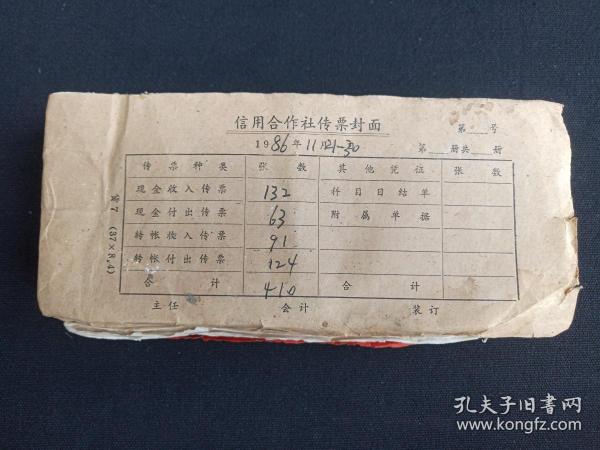 信用合作社传票封面
第 号
1986年11月21-30
第 册共 册
传票种类 张数 其他凭证 张数
现金收入传票 132 科目日结单
现金付出传票 63 附属单据
转帐收入传票 91
转帐付出传票 124
合计 410 合计
主任 会计 装订
(37×8.4)
孔夫子旧书网
www.kongfz.com